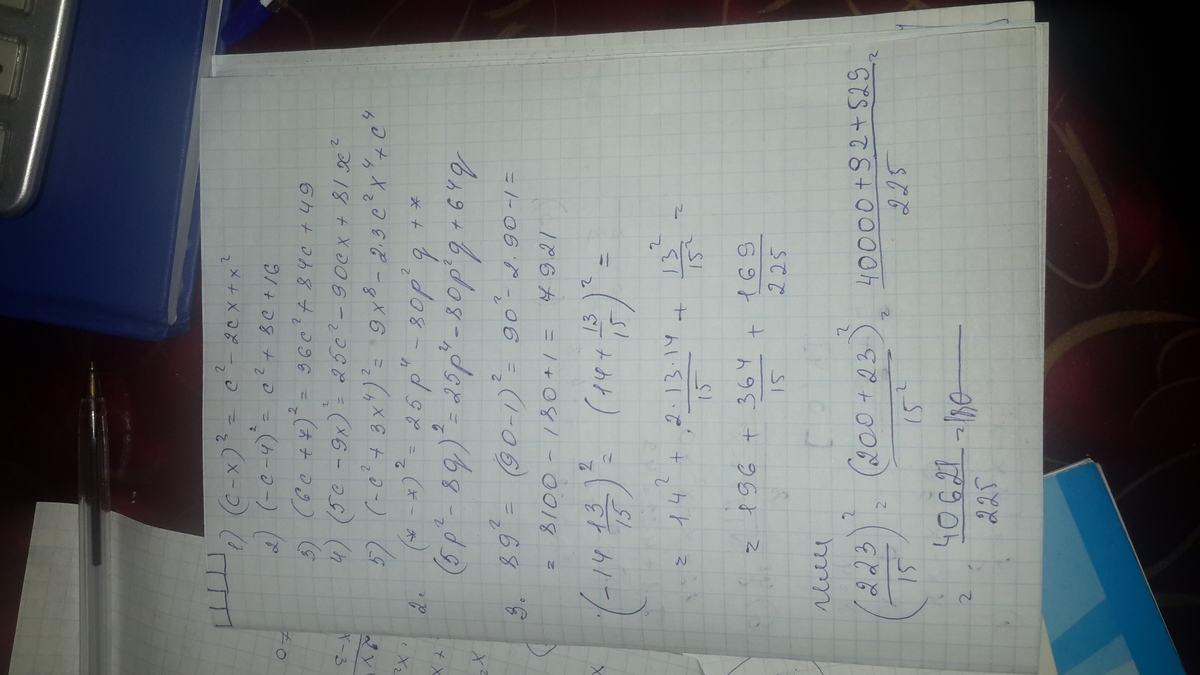 1) (c-x)² = c² - 2cx + x²
2) (-c-4)² = c² + 8c + 16
3) (6c + 7)² = 36c² + 84c + 49
4) (5c - 9x)² = 25c² - 90cx + 81x²
5) (-c² + 3x⁴)² = 9x⁸ - 2·3c²x⁴ + c⁴
2. (* - x)² = 25p⁴ - 80p²q + *
(5p² - 8q)² = 25p⁴ - 80p²q + 64q
3. 89² = (90-1)² = 90² - 2·90-1 =
= 8100 - 180 + 1 = 7921
(-14 13/15)² = (14 + 13/15)² =
= 14² + 2·13·14/15 + 13²/15² =
= 196 + 364/15 + 169/225
или
(223/15)² = (200+23)²/15² = 40000+92+529/225 =
= 40621/225 =